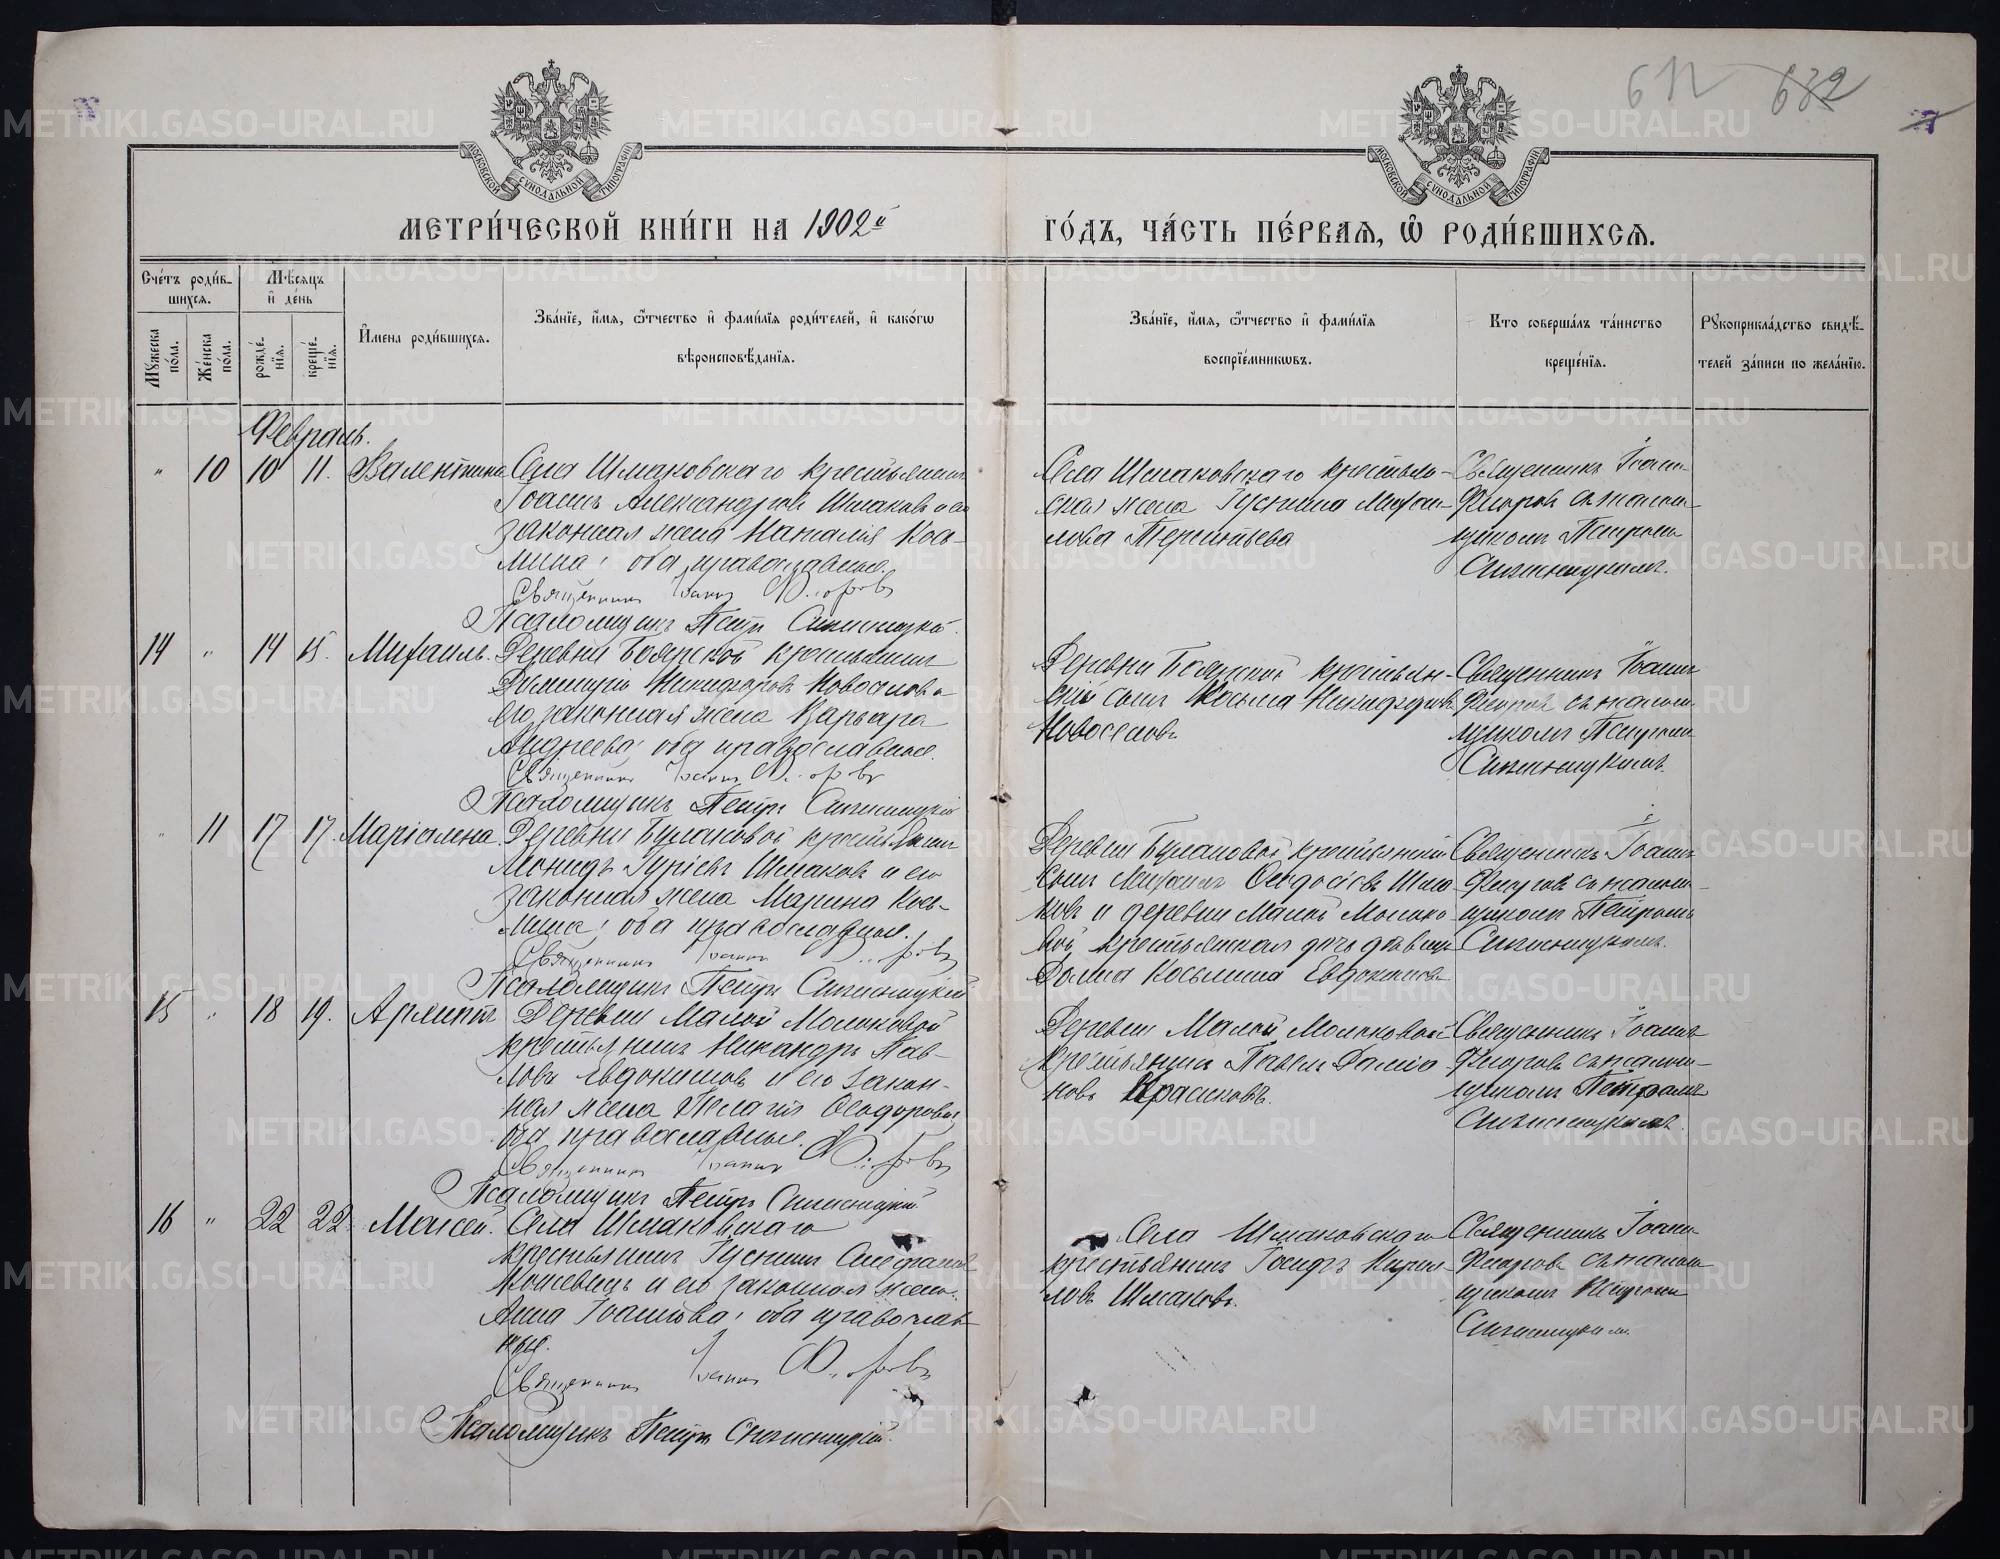 612 632
МОСКОВСКОЙ СУНОДАЛЬНОЙ ТИПОГРАФІИ
МОСКОВСКОЙ СУНОДАЛЬНОЙ ТИПОГРАФІИ
МЕТРИ́ЧЕСКОЙ КНИ́ГИ НА 1902й
ГО́ДЪ, ЧА́СТЬ ПЕ́РВАЯ, Ѡ РОДИ́ВШИХСЯ.
Сче́тъ роди́в-
шихся.
Мѣсяцъ
и҆ де́нь
Му́жеска
по́ла.
Же́нска
по́ла.
рожде́-
нїя.
креще́-
нїя.
И҆мена роди́вшихся.
Зва́нїе, и҆́мя, ѿтчество и҆ фами́лїя роди́телей, и҆ како́гѡ
вѣроисповѣ́данїя.
Зва́нїе, и҆́мя, ѿтчество и҆ фами́лїя
воспрїе́мникѡвъ.
Кто соверша́лъ та́инство
креще́нїя.
Рукоприкла́дство свидѣ́-
телей за́писи по жела́нїю.
Февраль.
" 10 10 11. Валентина
Села Шмаковскаго крестьянинъ
Іоаннъ Александровъ Шмаковъ и его
законная жена Наталія Кось-
мина; оба православные.
Священникъ Іоаннъ Флоровъ
Псаломщикъ Петръ
Села Шмаковскаго крестьян-
ская жена Іустина Михаи-
лова Терентьева
Священникъ Іоаннъ
Флоровъ съ псалом-
щикомъ Петромъ
14 " 14 15. Михаилъ.
Деревни Боярской крестьянинъ
Димитрій Никифоровъ Новоселовъ и
его законная жена Варвара
Андреева; оба православные.
Священникъ Іоаннъ Флоровъ
Псаломщикъ Петръ
Деревни Боярской крестьян-
скій сынъ Косьма Никифоровъ
Новоселовъ
Священникъ Іоаннъ
Флоровъ съ псалом-
щикомъ Петромъ
" 11 17 17. Маріамна.
Деревни Булановой крестьянинъ
Леонидъ Гурьевъ Шмаковъ и его
законная жена Марина Кось-
мина; оба православные.
Священникъ Іоаннъ Флоровъ
Псаломщикъ Петръ
Деревни Булановой крестьянскій
сынъ Михаилъ Ѳеодосіевъ Шма-
ковъ и деревни Малой Молоко-
вой, крестьянская дочь дѣвица
Домна Косьмина Евдокимова
Священникъ Іоаннъ
Флоровъ съ псалом-
щикомъ Петромъ
15 " 18 19.
Деревни Малой Молоковой
крестьянинъ Никандръ Пав-
ловъ Евдокимовъ и его закон-
ная жена Пелагія Ѳеодорова;
оба православные.
Священникъ Іоаннъ Флоровъ
Псаломщикъ Петръ
Деревни Малой Молоковой
крестьянинъ Павелъ Даміа-
новъ Красиковъ.
Священникъ Іоаннъ
Флоровъ съ псалом-
щикомъ Петромъ
16 " 22 22. Моисей.
Села Шмаковскаго
крестьянинъ Іустинъ
и его законная жена
Анна Іоаннова; оба православ-
ные.
Священникъ Іоаннъ Флоровъ
Псаломщикъ Петръ
Села Шмаковскаго
крестьянинъ Іосифъ Кирил-
ловъ Шмаковъ.
Священникъ Іоаннъ
Флоровъ съ псалом-
щикомъ Петромъ
METRIKI.GASO-URAL.RU